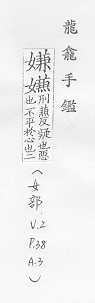 龍龕手鑑
嫌刑兼反疑也惡
也不平於心也二
(女部 V.2 P.38 A.3)